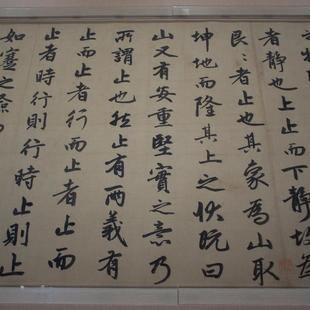 者靜也上止而下靜故為
艮〻者止也其象為山取
坤地而隆其上之狀既曰
山又有安重堅實之意乃
所謂止也然止有兩義有
止而止者行而止者止而
止者時行則行時止則止
如蹇之